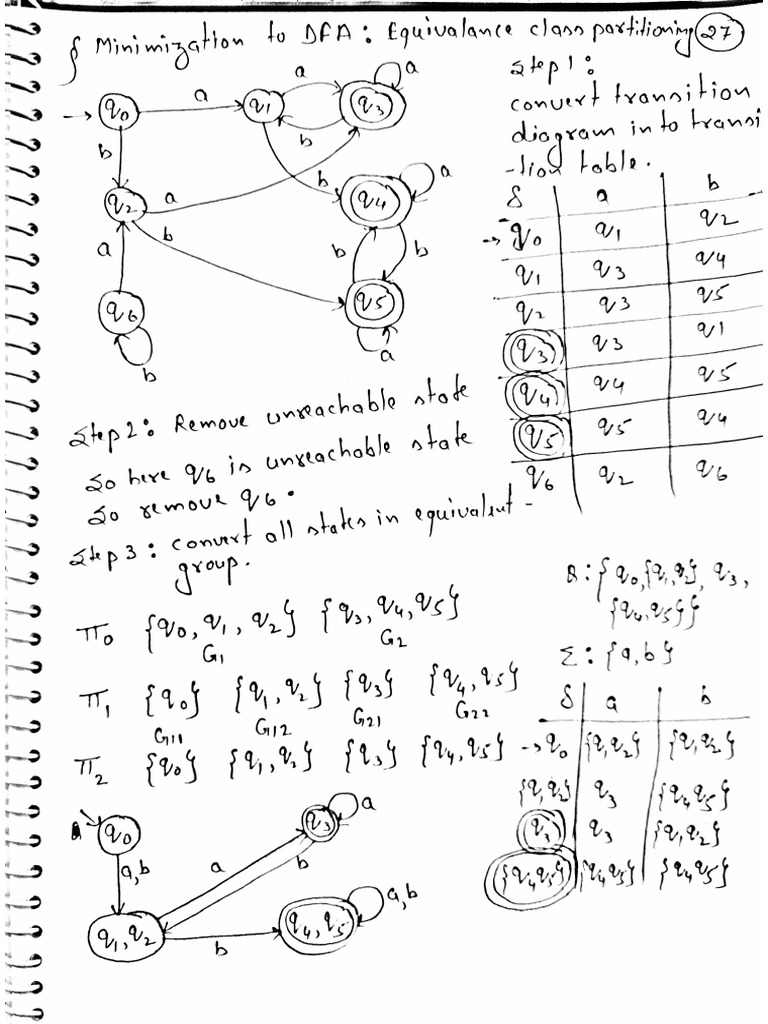 § Minimization to DFA: Equivalance class partitioning 27
Step 1:
convert transition
diagram in to transi
-tion table.
→ q0 a q1 a q3 a
b b
q2 a b q4 a
a b b b
q6 q5
b a
δ a b
→ q0 q1 q2
q1 q3 q4
q2 q3 q5
q3 q3 q1
q4 q4 q5
q5 q5 q4
q6 q2 q6
Step 2: Remove unreachable state
So here q6 is unreachable state
So remove q6.
Step 3: convert all states in equivalent -
group.
π0 {q0, q1, q2} {q3, q4, q5}
G1 G2
π1 {q0} {q1, q2} {q3} {q4, q5}
G11 G12 G21 G22
π2 {q0} {q1, q2} {q3} {q4, q5}
Q: {q0, {q1, q2}, q3,
{q4, q5}}
Σ: {a, b}
δ a b
→ q0 {q1, q2} {q1, q2}
{q1 q2} q3 {q4 q5}
q3 q3 {q1 q2}
{q4 q5} {q4 q5} {q4 q5}
q0 q3 a
a,b a b
q1, q2 b q4, q5 a,b